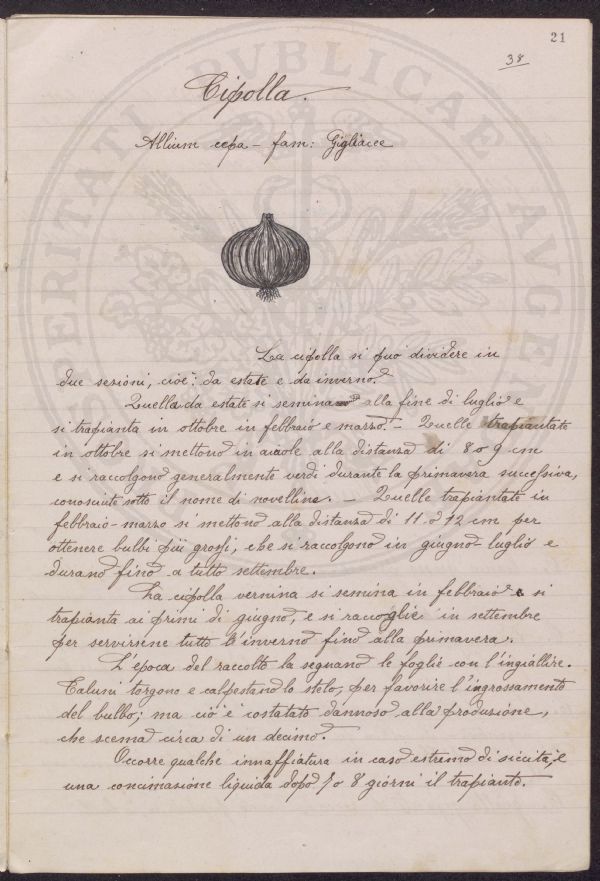 21
38
Cipolla.
Allium cepa - fam: Gigliacee
La cipolla si può dividere in
due sesioni, cioè: da estate e da inverno.
Quella da estate si semina alla fine di luglio e
si trapianta in ottobre in febbraio e marzo. - Quelle trapiantate
in ottobre si mettono in aiuole alla distanza di 8 o 9 cm
e si raccolgono generalmente verdi durante la primavera successiva,
conosciute sotto il nome di novelline. - Quelle trapiantate in
febbraio-marzo si mettono alla distanza di 11 o 12 cm per
ottenere bulbi più grossi, che si raccolgono in giugno-luglio e
durano fino a tutto settembre.
La cipolla vernina si semina in febbraio e si
trapianta ai primi di giugno, e si raccoglie in settembre
per servirsene tutto l'inverno fino alla primavera.
L'epoca del raccolto la segnano le foglie con l'ingiallire.
Taluni torgono e calpestano lo stelo, per favorire l'ingrossamento
del bulbo; ma ciò è costatato dannoso alla produzione,
che scema circa di un decimo.
Occorre qualche innaffiatura in caso estremo di siccità, e
una concimasione liquida dopo 7 o 8 giorni il trapianto.
VERITATI PUBLICAE AVGEN